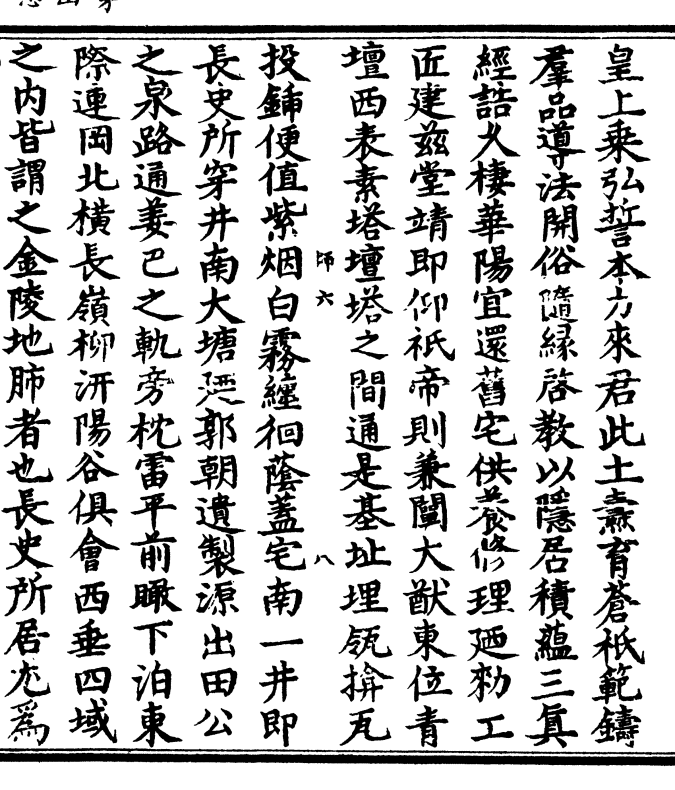 皇上乗弘誓本方來君此土燾育蒼祇範鑄
羣品導法開俗隨縁啓教以隱居積蘊三眞
經誥久棲華陽宜還舊宅供養修理廼勑工
匠建兹堂靖即仰祇帝則兼闡大猷東位青
壇西表素塔壇塔之間通是基址埋瓴揜瓦
師六
八
投鍤便值紫烟白霧纏徊蔭蓋宅南一井即
長史所穿井南大塘郭朝遺製源出田公
之泉路通姜巴之軌旁枕雷平前瞰下泊東
際連岡北横長嶺柳汧陽谷俱會西垂四域
之内皆謂之金陵地肺者也長史所居尤爲